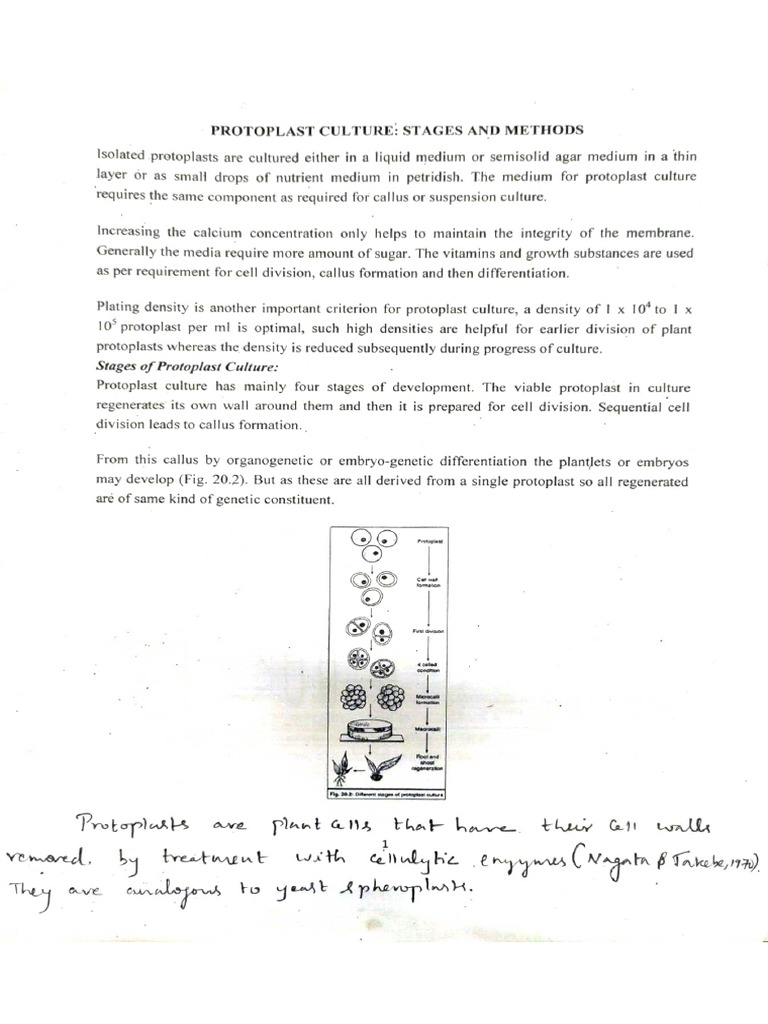 PROTOPLAST CULTURE: STAGES AND METHODS
Isolated protoplasts are cultured either in a liquid medium or semisolid agar medium in a thin
layer or as small drops of nutrient medium in petridish. The medium for protoplast culture
requires the same component as required for callus or suspension culture.
Increasing the calcium concentration only helps to maintain the integrity of the membrane.
Generally the media require more amount of sugar. The vitamins and growth substances are used
as per requirement for cell division, callus formation and then differentiation.
Plating density is another important criterion for protoplast culture, a density of 1 x 10⁴ to 1 x
10⁵ protoplast per ml is optimal, such high densities are helpful for earlier division of plant
protoplasts whereas the density is reduced subsequently during progress of culture.
Stages of Protoplast Culture:
Protoplast culture has mainly four stages of development. The viable protoplast in culture
regenerates its own wall around them and then it is prepared for cell division. Sequential cell
division leads to callus formation.
From this callus by organogenetic or embryo-genetic differentiation the plantlets or embryos
may develop (Fig. 20.2). But as these are all derived from a single protoplast so all regenerated
are of same kind of genetic constituent.
Protoplast
Cell wall
formation
First division
4 celled
condition
Microcalli
formation
Macrocalli
Root and
shoot
regeneration
Fig. 20.2: Different stages of protoplast culture
Protoplasts are plant cells that have their cell walls
removed. by treatment with cellulytic enzymes (Nagata & Takebe, 1970).
They are analogous to yeast spheroplasts.
1